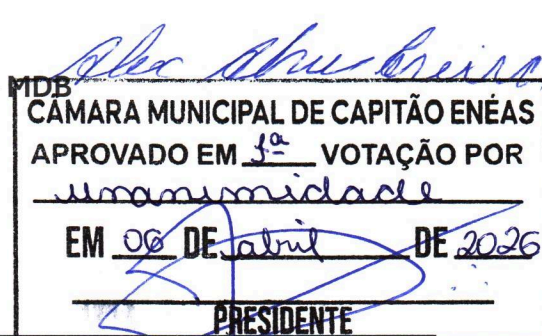 Alex
MDB
CÂMARA MUNICIPAL DE CAPITÃO ENÉAS
APROVADO EM 1ª VOTAÇÃO POR
unanimidade
EM 06 DE abril DE 2026
PRESIDENTE